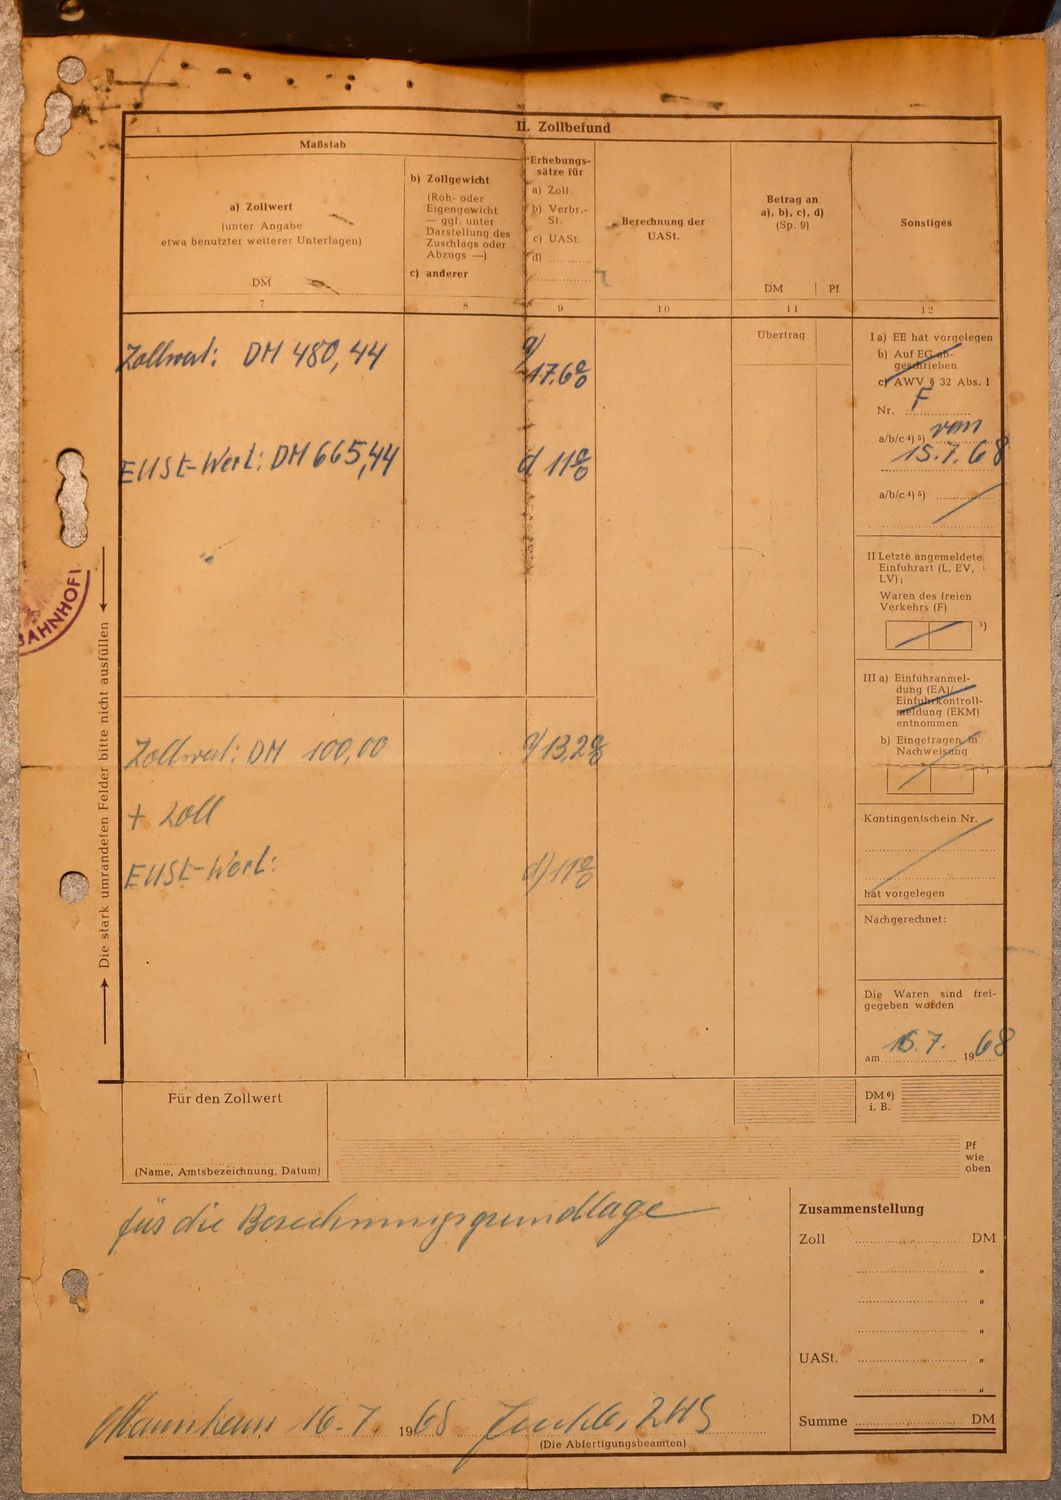 II. Zollbefund
Maßstab
a) Zollwert
(unter Angabe
etwa benutzter weiterer Unterlagen)
DM
7
b) Zollgewicht
(Roh- oder
Eigengewicht
— ggf. unter
Darstellung des
Zuschlags oder
Abzugs —)
c) anderer
8
Erhebungs-
sätze für
a) Zoll
b) Verbr.-
St.
c) UASt.
d)
9
Berechnung der
UASt.
10
Betrag an
a), b), c), d)
(Sp. 9)
DM Pf
11
Sonstiges
12
Zollwert: DM 480,44
a) 17,6%
EUSt-Wert: DM 665,44
d 11%
Zollwert: DM 100,00
a) 13,2%
+ Zoll
EUSt-Wert:
d) 11%
Übertrag
I a) EE hat vorgelegen
b) Auf EG ab-
geschrieben
c) AWV § 32 Abs. 1
Nr. F
a/b/c ⁴) ⁵) vom
15.7.68
a/b/c ⁴) ⁵)
II Letzte angemeldete
Einfuhrart (L, EV,
LV):
Waren des freien
Verkehrs (F)
⁵)
III a) Einfuhranmel-
dung (EA)/
Einfuhrkontroll-
meldung (EKM)
entnommen
b) Eingetragen in
Nachweisung
Kontingentschein Nr.
hat vorgelegen
Nachgerechnet:
Die Waren sind frei-
gegeben worden
am 16.7. 1968
Die stark umrandeten Felder bitte nicht ausfüllen
BAHNHOF
Für den Zollwert
(Name, Amtsbezeichnung, Datum)
DM ⁶)
i. B.
Pf
wie
oben
für die Berechnungsgrundlage
Zusammenstellung
Zoll DM
"
"
"
UASt. "
"
Summe DM
Mannheim 16.7. 1968
ZHS
(Die Abfertigungsbeamten)